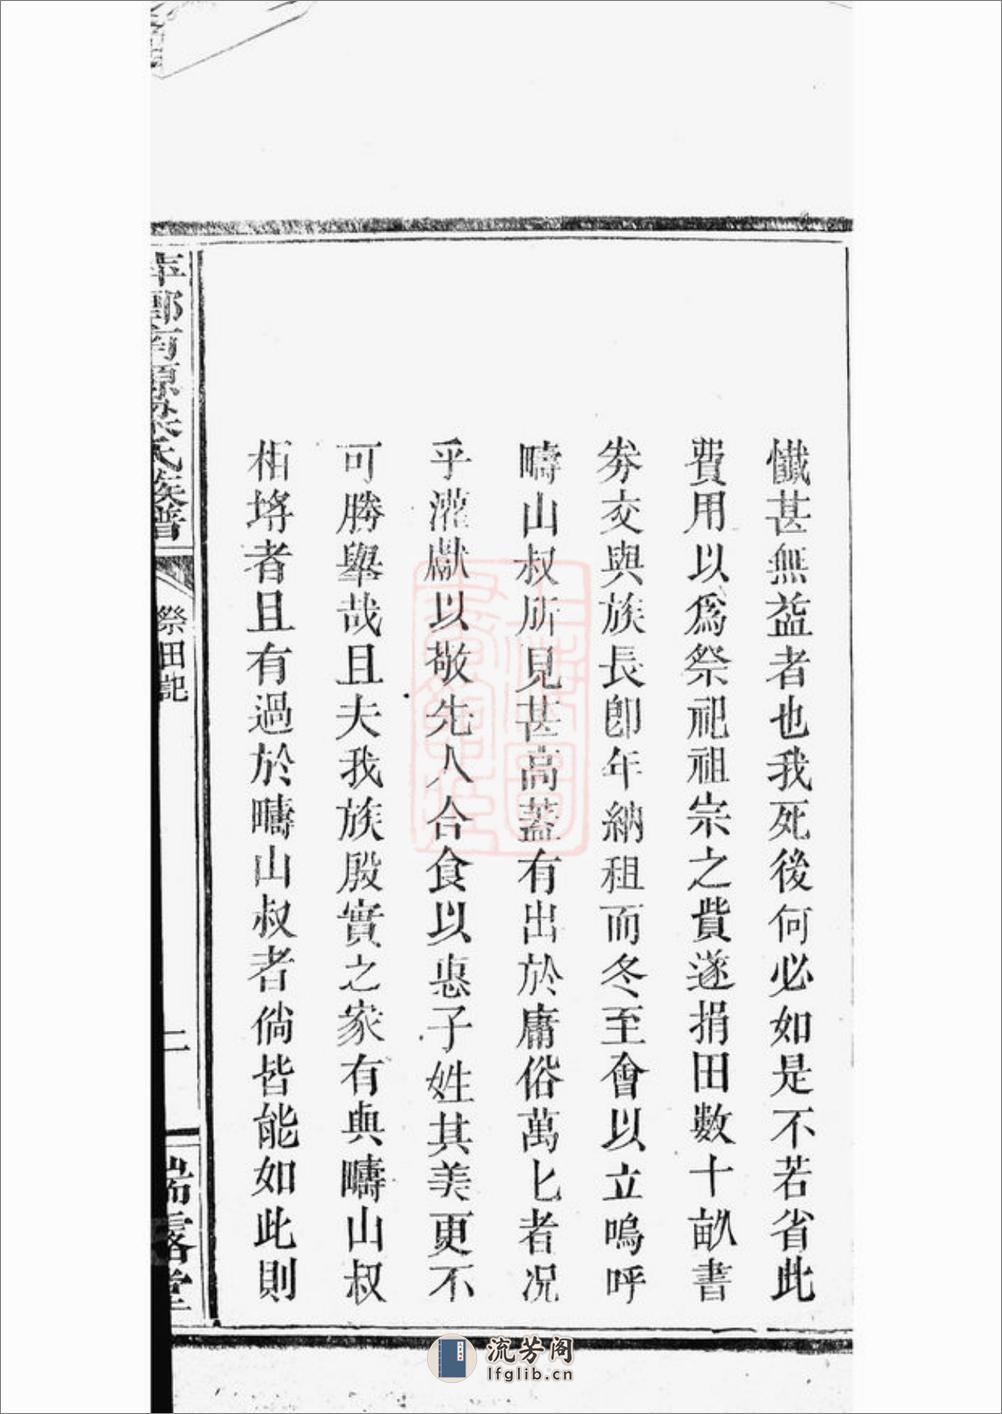 懺甚無益者也我死後何必如是不若省此
費用以爲祭祀祖宗之貲遂捐田數十畝書
券交與族長卽年納租而冬至會以立嗚呼
疇山叔所見甚高蓋有出於庸俗萬匕者况
乎灌獻以敬先人合食以惠子姓其美更不
可勝舉哉且夫我族殷實之家有與疇山叔
相埒者且有過於疇山叔者倘皆能如此則
南源 氏族譜
祭田記
二
瑞露堂
流芳阁
lfglib.cn